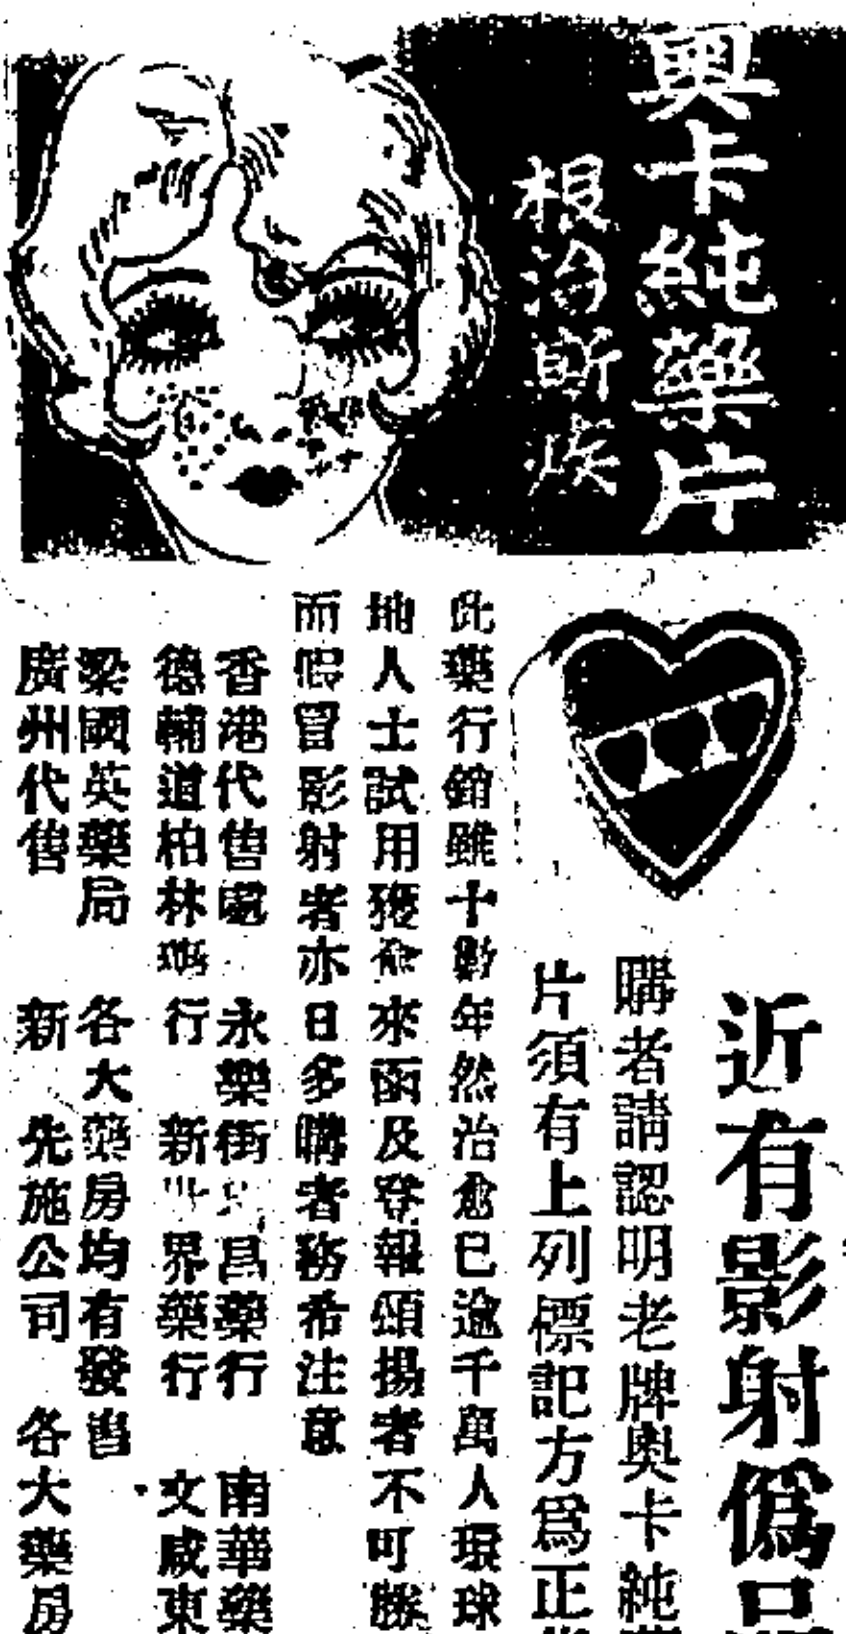 奧卡純藥片
根治斯疾
近有影射僞品
購者請認明老牌奧卡純藥
片須有上列標記方爲正
此藥行銷雖十數年然治愈已逾千萬人環球
地人士試用獲愈來函及登報頌揚者不可勝
而假冒影射者亦日多購者務希注意
香港代售處 永樂街 昌藥行 南華藥
德輔道柏林 行 新世界藥行 文咸東
梁國英藥局 各大藥房均有發售
廣州代售 新 先施公司 各大藥房